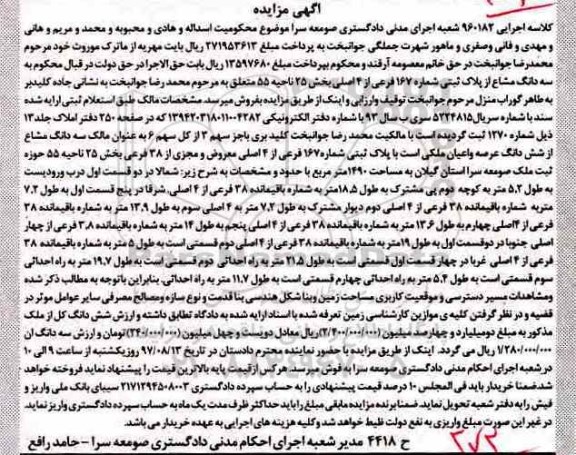 آگهی مزایده
کلاسه اجرایی ۹۶۰۱۸۲ شعبه اجرای مدنی دادگستری صومعه سرا موضوع محکومیت اسداله و هادی و محبوبه و محمد و مریم و هانی
و مهدی و فانی وصغری و ماهور شهرت جملگی جوانبخت به پرداخت مبلغ ۳۷۱۹۵۳۶۱۳ ریال بابت مهریه از ماترک موروث خود مرحوم
محمدرضا جوانبخت در حق خانم معصومه آرقند و محکوم بپرداخت مبلغ ۱۳۵۹۷۶۸۰ ریال بابت حق الاجرا در حق دولت در قبال محکوم به
سه دانگ مشاع از پلاک ثبتی شماره ۱۶۷ فرعی از ۴ اصلی بخش ۲۵ ناحیه ۵۵ متعلق به مرحوم محمد رضا جوانبخت به نشانی جاده کلیدبر
به طاهر گوراب منزل مرحوم جوانبخت توقیف وارزیابی و اینک از طریق مزایده بفروش میرسد. مشخصات مالک طبق استعلام ثبتی ارایه شده
سند با شماره سریال ۵۲۲۴۸۱۵ سری ب سال ۹۳ با شماره دفتر الکترونیکی ۱۳۹۴۲۰۳۱۸۰۱۱۰۰۴۲۸۲ که در صفحه ۲۵۰ دفتر املاک جلد ۱۳
ذیل شماره ۱۲۷۰ ثبت گردیده است با مالکیت محمد رضا جوانبخت کلید بری باجز سهم ۳ از کل سهم ۶ به عنوان مالک سه دانگ مشاع
از شش دانگ عرصه واعیان ملکی است با پلاک ثبتی شماره ۱۶۷ فرعی از ۴ اصلی مفروض و مجزی از ۳۸ فرعی بخش ۲۵ ناحیه ۵۵ حوزه
ثبت ملک صومعه سرا استان گیلان به مساحت ۱۴۹۰ متر مربع با حدود و مشخصات به شرح زیر: شمالا در دو قسمت اول درب ورودیست
به طول ۵.۲ متر به کوچه دوم پی مشترک به طول ۱۸.۵ متر به شماره باقیمانده ۳۸ فرعی از ۴ اصلی، شرقا در پنج قسمت اول به طول ۷.۲
متر به شماره باقیمانده ۳۸ فرعی از ۴ اصلی دوم دیوار مشترک به طول ۷.۲ متر به ۴ اصلی سوم به طول ۱۳.۹ متر به شماره باقیمانده ۳۸
فرعی از ۴ اصلی چهارم به طول ۱۳.۶ متر به شماره باقیمانده ۳۸ فرعی از ۴ اصلی پنجم به طول ۱۴ متر به شماره باقیمانده ۳.۸ فرعی از چهار
اصلی جنوبا در دوقسمت اول به طول ۱۹ متر به شماره باقیمانده ۳۸ فرعی از ۴ اصلی دوم قسمتی است به طول ۵ متر به شماره باقیمانده ۳۸
فرعی از ۴ اصلی. غربا در چهار قسمت اول قسمتی است به طول ۲۱.۵ متر به راه احداثی دوم قسمتی است به طول ۱۹.۷ متر به راه احداثی
سوم قسمتی است به طول ۵.۴ متر به راه احداثی چهارم قسمتی است به طول ۱۱.۷ متر به راه احداثی. بنابراین باتوجه به مطالب ذکر شده
ومشاهدات مسیر دسترسی و موقعیت کاربری مساحت زمین وبنا شکل هندسی بنا قدمت و نوع سازه ومصالح مصرفی سایر عوامل موثر در
قضیه و در نظر گرفتن کلیه ی موازین کارشناسی زمین تعرفه شده با اسناد ارایه شده به دادگاه تطابق داشته و ارزش شش دانگ کل از ملک
مذکور به مبلغ دومیلیارد و چهارصد میلیون (۲/۴۰۰/۰۰۰/۰۰۰)ریال معادل دویست و چهل میلیون (۲۴۰/۰۰۰/۰۰۰)تومان و ارزش سه دانگ ان
۱/۲۸۰/۰۰۰/۰۰۰ ریال می گردد. اینک از طریق مزایده با حضور نماینده محترم دادستان در تاریخ ۹۷/۰۸/۱۳ روز یکشنبه از ساعت ۹ الی ۱۰
در شعبه اجرای احکام مدنی دادگستری صومعه سرا به فروش میرسد. هرکس از قیمت پایه بالاترین قیمت را پیشنهاد نماید فروخته خواهد
شد.ضمنا خریدار باید فی المجلس ۱۰ درصد قیمت پیشنهادی را به حساب سپرده دادگستری ۲۱۷۱۲۹۴۵۰۸۰۰۳ سیبای بانک ملی واریز و
فیش را به دفتر شعبه تحویل نماید. ضمنا برنده مزایده مابقی مبلغ را باید حداکثر ظرف مدت یک ماه به حساب سپرده دادگستری واریز نماید.
در غیر این صورت مبلغ واریزی به نفع دولت ظبط خواهد شد و کلیه هزینه های اجرایی به عهده خریدار می باشد.
ح ۴۴۱۸ مدیر شعبه اجرای احکام مدنی دادگستری صومعه سرا - حامد رافع
۲۷۲